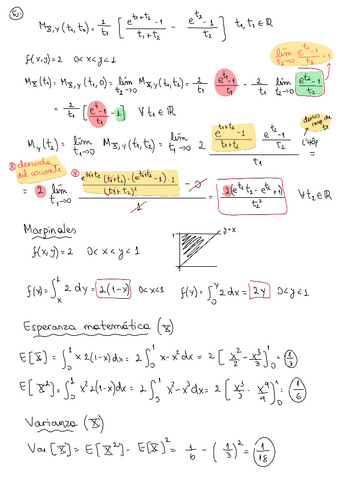 M_X,Y(t₁,t₂) = 2/t₁ [ (e^(t₁+t₂) - 1)/(t₁+t₂) - (e^(t₂) - 1)/t₂ ] t₁,t₂ ∈ ℝ
f(x,y)=2 0<x<y<1
lím t₂→0 (e^(t₂) - 1)/t₂ = 1
M_X(t₁) = M_X,Y(t₁,0) = lím t₂→0 M_X,Y(t₁,t₂) = 2/t₁ · (e^(t₁) - 1)/t₁ - 2/t₁ lím t₂→0 (e^(t₂) - 1)/t₂
= 2/t₁ [ (e^(t₁) - 1)/t₁ - 1 ] ∀ t₁ ∈ ℝ
M_Y(t₂) = lím t₁→0 M_X,Y(t₁,t₂) = lím t₁→0 2 ( (e^(t₁+t₂) - 1)/(t₁+t₂) - (e^(t₂) - 1)/t₂ ) / t₁ =
L'Hôp
derivada del cociente
= 2 lím t₁→0 ( (e^(t₁+t₂)(t₁+t₂) - (e^(t₁+t₂) - 1)·1) / (t₁+t₂)² - 0 ) / 1 = 2(e^(t₂) t₂ - e^(t₂) + 1) / t₂² ∀ t₂ ∈ ℝ
Marginales
f(x,y) = 2 0<x<y<1
y=x
f(x) = ∫ₓ¹ 2 dy = 2(1-x) 0<x<1 f(y) = ∫₀ʸ 2 dx = 2y 0<y<1
Esperanza matemática (X)
E[X] = ∫₀¹ x 2(1-x)dx = 2∫₀¹ x-x² dx = 2 [ x²/2 - x³/3 ]₀¹ = 1/3
E[X²] = ∫₀¹ x² 2(1-x)dx = 2∫₀¹ x²-x³ dx = 2 [ x³/3 - x⁴/4 ]₀¹ = 1/6
Varianza (X)
Var[X] = E[X²] - E[X]² = 1/6 - (1/3)² = 1/18